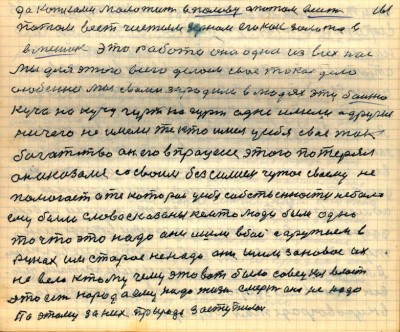 да копнами молотить в полову а потом веить
потом веет чистым зерном его как золото в
в мешок это работа она одна из всех нас
мы для этого всего делаем свое такое дело
особенно мы с вами зародили в людях эту
кучу на кучу гурт на гурт одни имели а другие
ничего не имели те кто имел у себя свое так
богатство он его в процессе этого потерял
он оказался со своим бессилием чужое своему не
помогает а те которые у них собственности не было
ему были слова сказаны кем то люди были одно
то что это надо они шли в бой с оружием в
руках им старое не надо они шли за новое их
не вело к тому чему это вот было советска власть
это есть народ а ему надо жизнь смерть она не надо
По этому за них природа заступилась